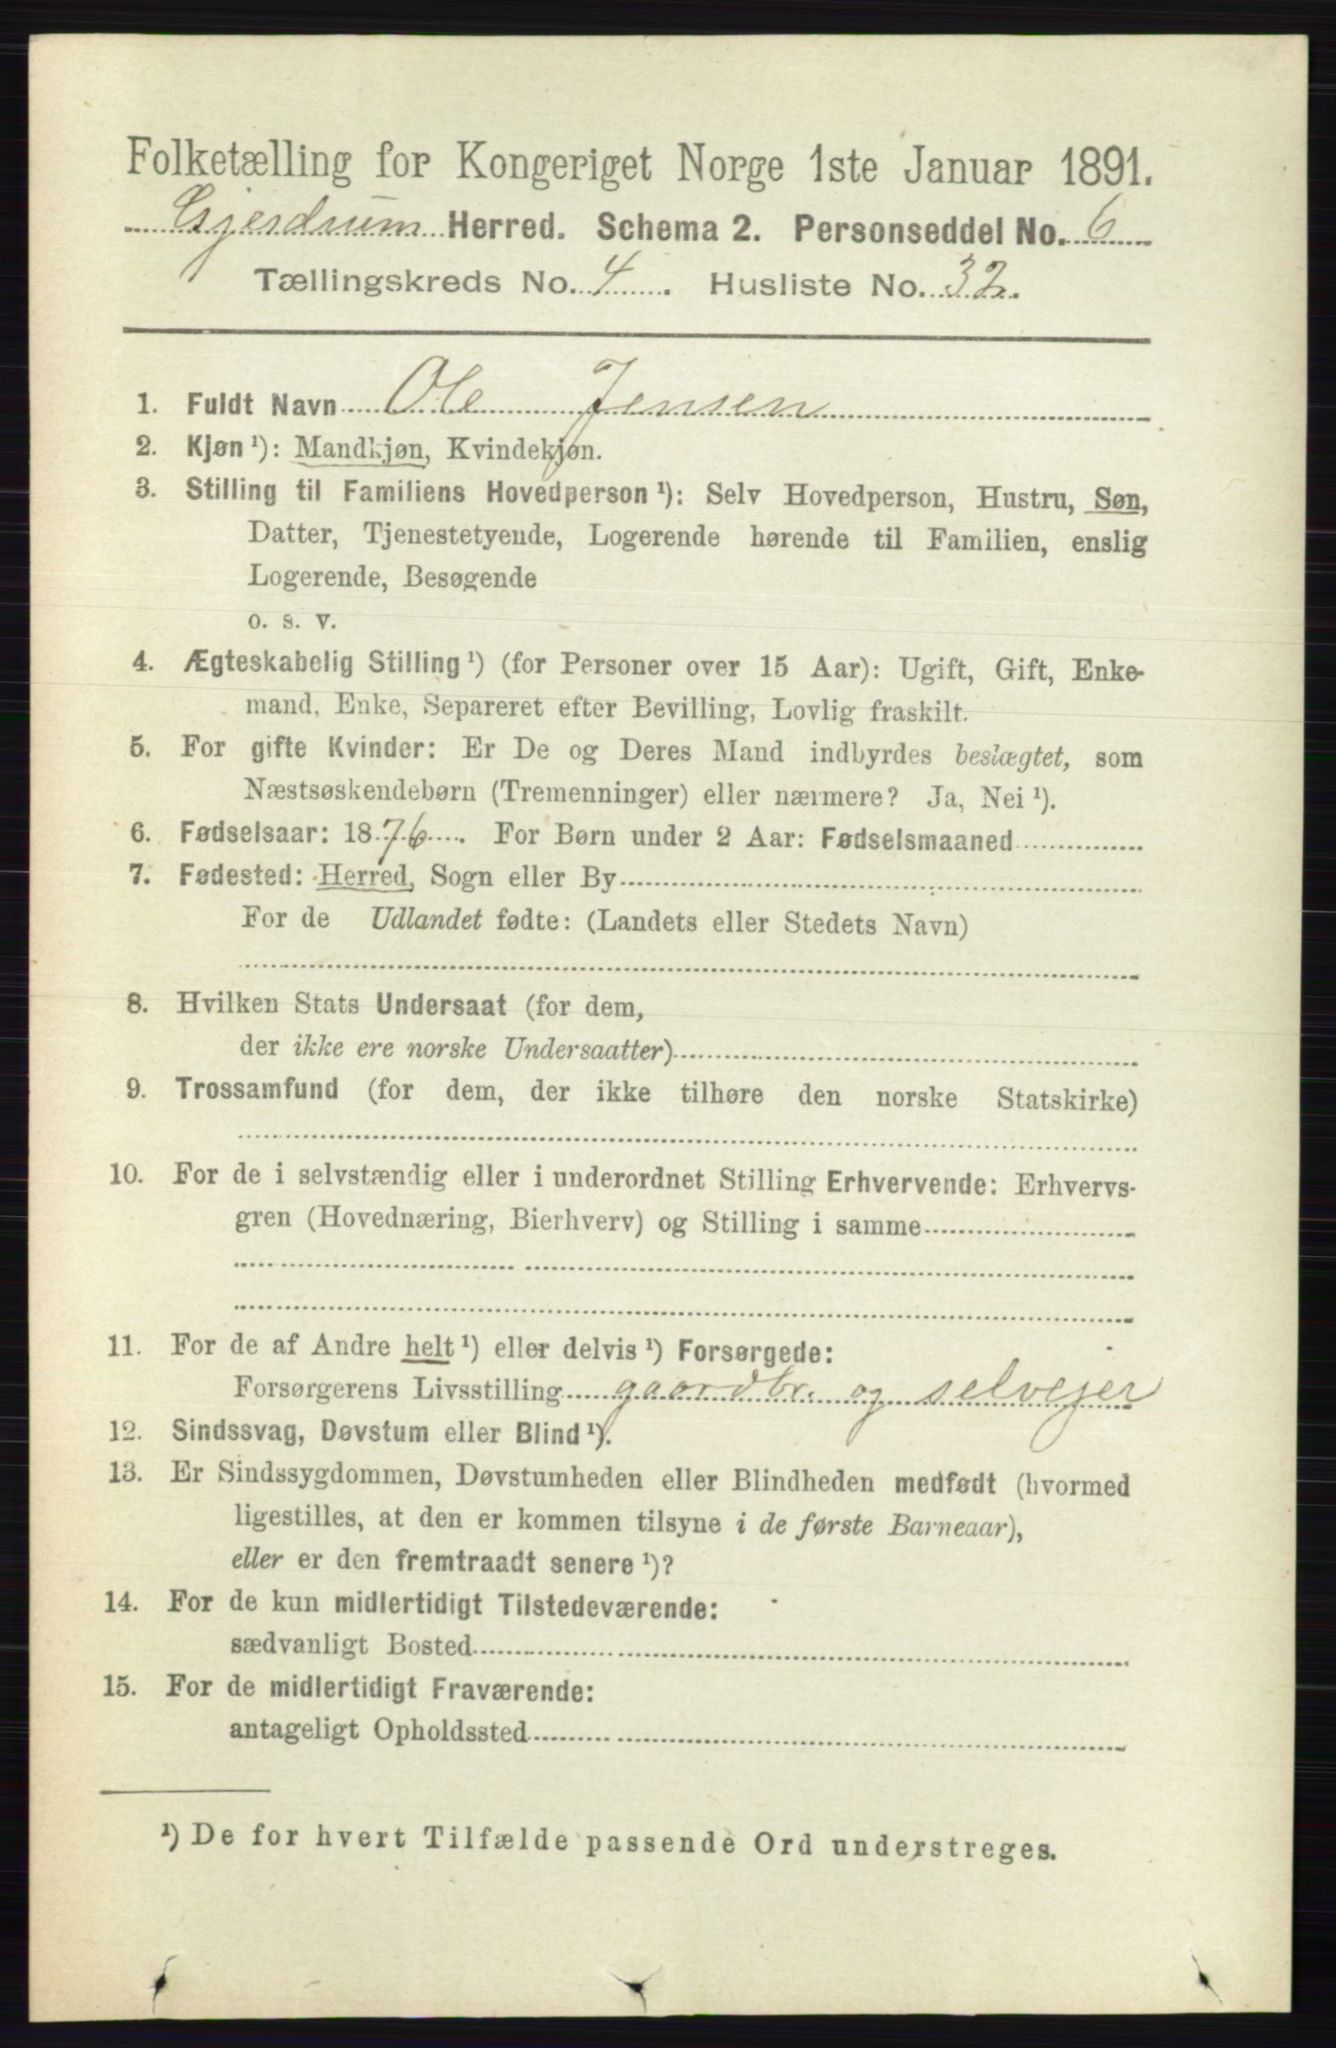 Folketælling for Kongeriget Norge 1ste Januar 1891.
Gjerdrum Herred. Schema 2. Personseddel No. 6
Tællingskreds No. 4. Husliste No. 32.
1. Fuldt Navn Ole Jensen
2. Kjøn ¹): Mandkjøn, Kvindekjøn.
3. Stilling til Familiens Hovedperson ¹): Selv Hovedperson, Hustru, Søn,
Datter, Tjenestetyende, Logerende hørende til Familien, enslig
Logerende, Besøgende
o. s. v.
4. Ægteskabelig Stilling ¹) (for Personer over 15 Aar): Ugift, Gift, Enke-
mand, Enke, Separeret efter Bevilling, Lovlig fraskilt.
5. For gifte Kvinder: Er De og Deres Mand indbyrdes beslægtet, som
Næstsøskendebørn (Tremenninger) eller nærmere? Ja, Nei ¹).
6. Fødselsaar: 1876. For Børn under 2 Aar: Fødselsmaaned
7. Fødested: Herred, Sogn eller By
For de Udlandet fødte: (Landets eller Stedets Navn)
8. Hvilken Stats Undersaat (for dem,
der ikke ere norske Undersaatter)
9. Trossamfund (for dem, der ikke tilhøre den norske Statskirke)
10. For de i selvstændig eller i underordnet Stilling Erhvervende: Erhvervs-
gren (Hovednæring, Bierhverv) og Stilling i samme
11. For de af Andre helt ¹) eller delvis ¹) Forsørgede:
Forsørgerens Livsstilling gaardbr. og selvejer
12. Sindssvag, Døvstum eller Blind ¹).
13. Er Sindssygdommen, Døvstumheden eller Blindheden medfødt (hvormed
ligestilles, at den er kommen tilsyne i de første Barneaar),
eller er den fremtraadt senere ¹)?
14. For de kun midlertidigt Tilstedeværende:
sædvanligt Bosted
15. For de midlertidigt Fraværende:
antageligt Opholdssted
¹) De for hvert Tilfælde passende Ord understreges.